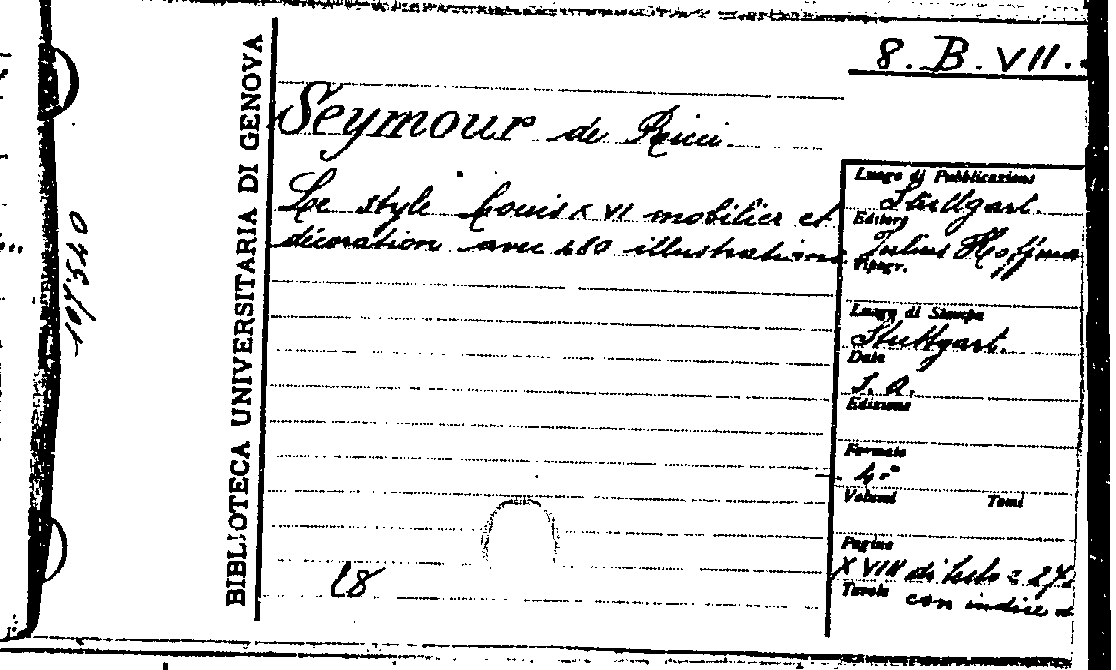 8. B. VII.
BIBLIOTECA UNIVERSITARIA DI GENOVA
Seymour de Ricci.
Le style Louis XVI mobilier et
décoration avec 480 illustrations
18
Luogo di Pubblicazione
Stuttgart.
Editore
Julius Hoffman
Tipogr.
Luogo di Stampa
Stuttgart.
Data
S. a.
Edizione
Formato
4°
Volumi Tomi
Pagine
XVIII di testo =
Tavole con indice